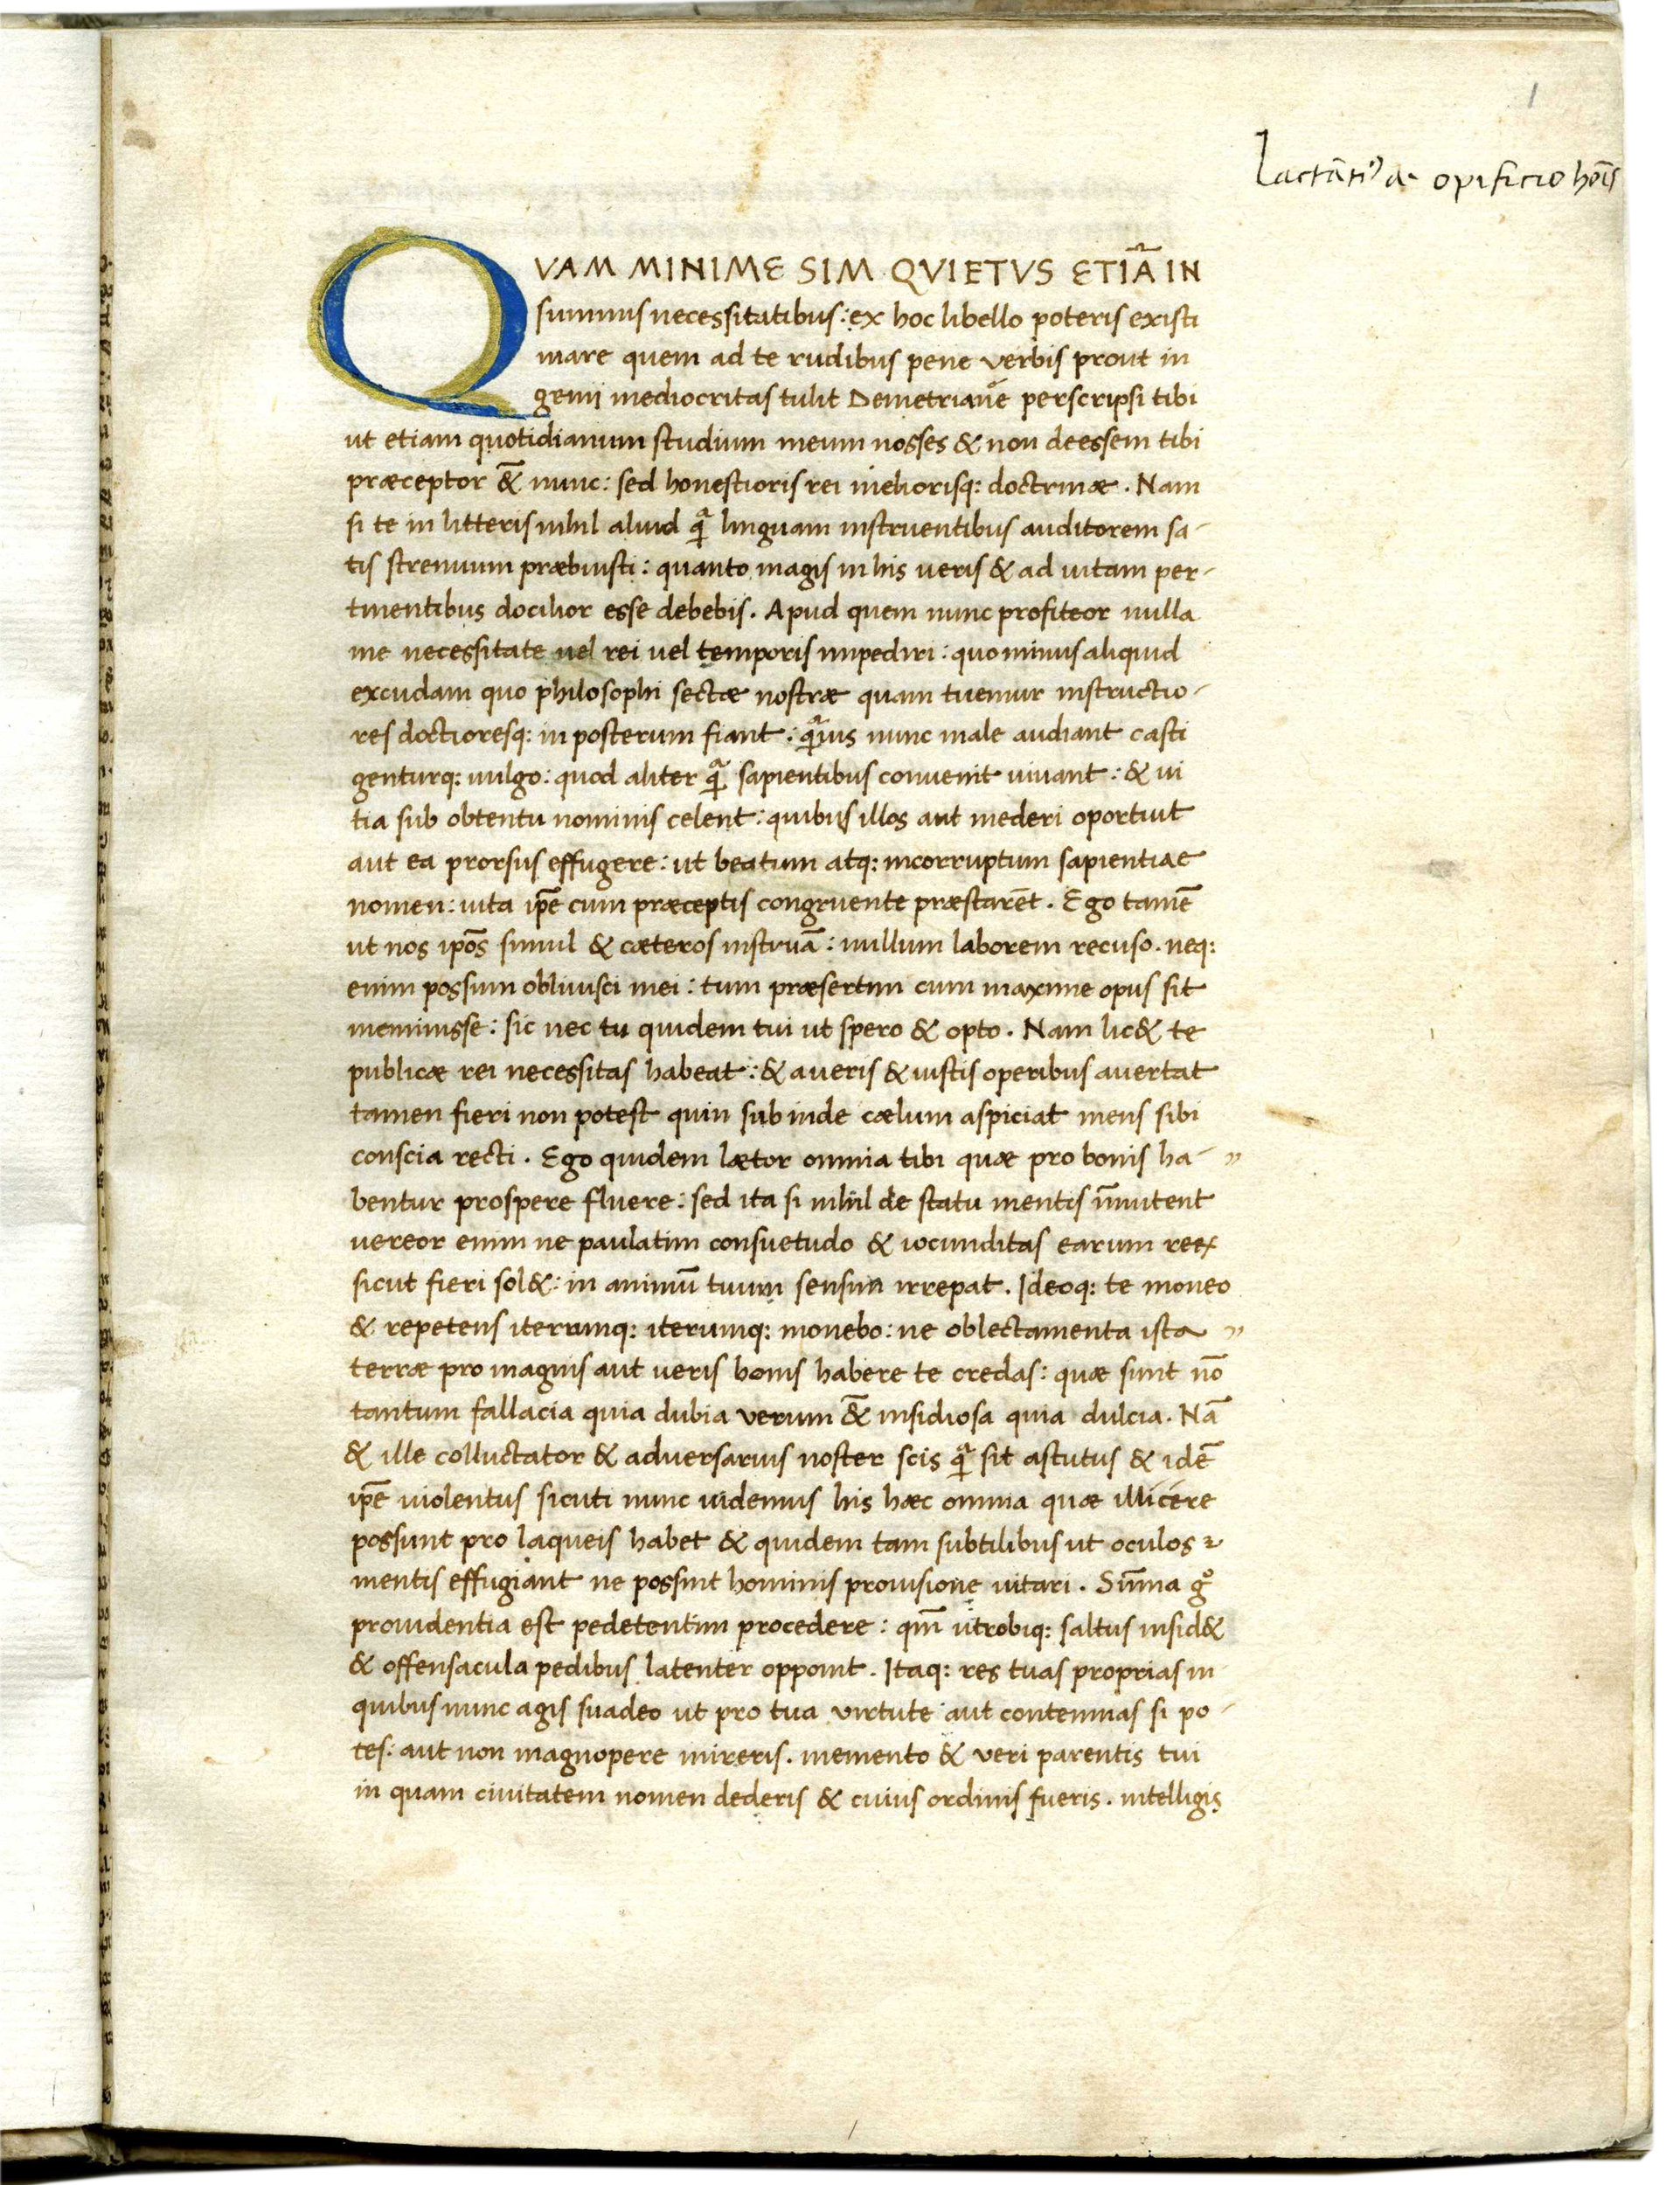 1
Lactāti⁹ d. opificio hoīs
QVAM MINIME SIM QVIETVS ETIĀ IN
summis necessitatibus: ex hoc libello poteris existi
mare quem ad te rudibus pene verbis prout in
genii mediocritas tulit Demetriane perscripsi tibi
ut etiam quotidianum studium meum nosses & non deessem tibi
præceptor &̄ nunc: sed honestioris rei meliorisq: doctrinæ. Nam
si te in litteris nihil aliud qᷓ linguam instruentibus auditorem sa-
tis strenuum præbuisti: quanto magis in his ueris & ad uitam per-
tinentibus docilior esse debebis. Apud quem nunc profiteor nulla
me necessitate uel rei uel temporis impediri: quominus aliquid
excudam quo philosophi sectæ nostræ quam tuemur instructio-
res doctioresq: in posterum fiant. qᷓuis nunc male audiant casti
genturq: uulgo: quod aliter qᷓ sapientibus conuenit uiuant: & ui
tia sub obtentu nominis celent: quibus illos aut mederi oportuit
aut ea prorsus effugere: ut beatum atq: incorruptum sapientiae
nomen: uita ip̄e cum præceptis congruente præstarēt. Ego tamē
ut nos ipōs simul & cæteros instruā: nullum laborem recuso. neq:
enim possum obliuisci mei: tum præsertim cum maxime opus sit
meminisse: sic nec tu quidem tui ut spero & opto. Nam lic& te
publicæ rei necessitas habeat: & a ueris & iustis operibus auertat
tamen fieri non potest quin sub inde cælum aspiciat mens sibi
conscia recti. Ego quidem lætor omnia tibi quæ pro bonis ha- "
bentur prospere fluere: sed ita si nihil de statu mentis īmutent
uereor enim ne paulatim consuetudo & iocunditas earum reꝝ
sicut fieri sol&: in animū tuum sensim irrepat. Ideoq: te moneo
& repetens iterumq: iterumq: monebo: ne oblectamenta ista "
terræ pro magnis aut ueris bonis habere te credas: quæ sunt nō
tantum fallacia quia dubia verum &̄ insidiosa quia dulcia. Nā
& ille colluctator & aduersarius noster scis qᷓ sit astutus & idē
ip̄e uiolentus sicuti nunc uidemus his hæc omnia quæ illicere
possunt pro laqueis habet & quidem tam subtilibus ut oculos
mentis effugiant ne possint hominis prouisione uitari. Sūma gͦ
prouidentia est pedetentim procedere: qm̄ utrobiq: saltus insid&
& offensacula pedibus latenter opponit. Itaq: res tuas proprias in
quibus nunc agis suadeo ut pro tua virtute aut contemnas si po-
tes: aut non magnopere mireris. memento & veri parentis tui
in quam ciuitatem nomen dederis & cuius ordinis fueris. intelligis